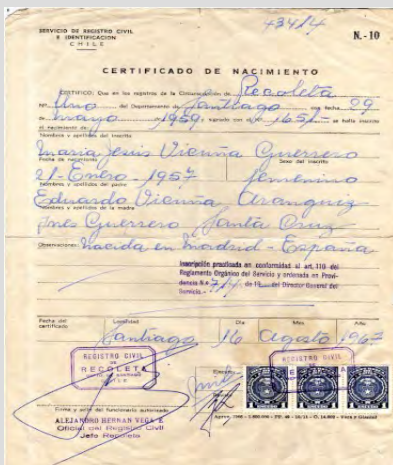 43414
SERVICIO DE REGISTRO CIVIL
E IDENTIFICACION
CHILE
N.- 10
CERTIFICADO DE NACIMIENTO
CERTIFICO: Que en los registros de la Circunscripción de Recoleta
Nº Uno del Departamento de Santiago con fecha 29
de mayo de 1959, signado con el Nº 1651 se halla inscrito
el nacimiento de:
Nombres y apellidos del inscrito
María Jesús Vicuña Guerrero
Fecha de nacimiento Sexo del inscrito
21-Enero-1957 femenino
Nombres y apellidos del padre
Eduardo Vicuña Aranguez
Nombres y apellidos de la madre
Ines Guerrero Santa Cruz
Observaciones: Nacida en Madrid - España
Inscripción practicada en conformidad al art. 110 del
Reglamento Orgánico del Servicio y ordenada en Provi-
dencia N.o de 19 del Director General del
Servicio.-
Fecha del certificado Localidad Día Mes Año
Santiago 16 Agosto 1967
REGISTRO CIVIL
RECOLETA
CHILE
REGISTRO CIVIL
Firma y sello del funcionario autorizado
ALEJANDRO HERNAN VEGA E.
Oficial del Registro Civil
Jefe Recoleta